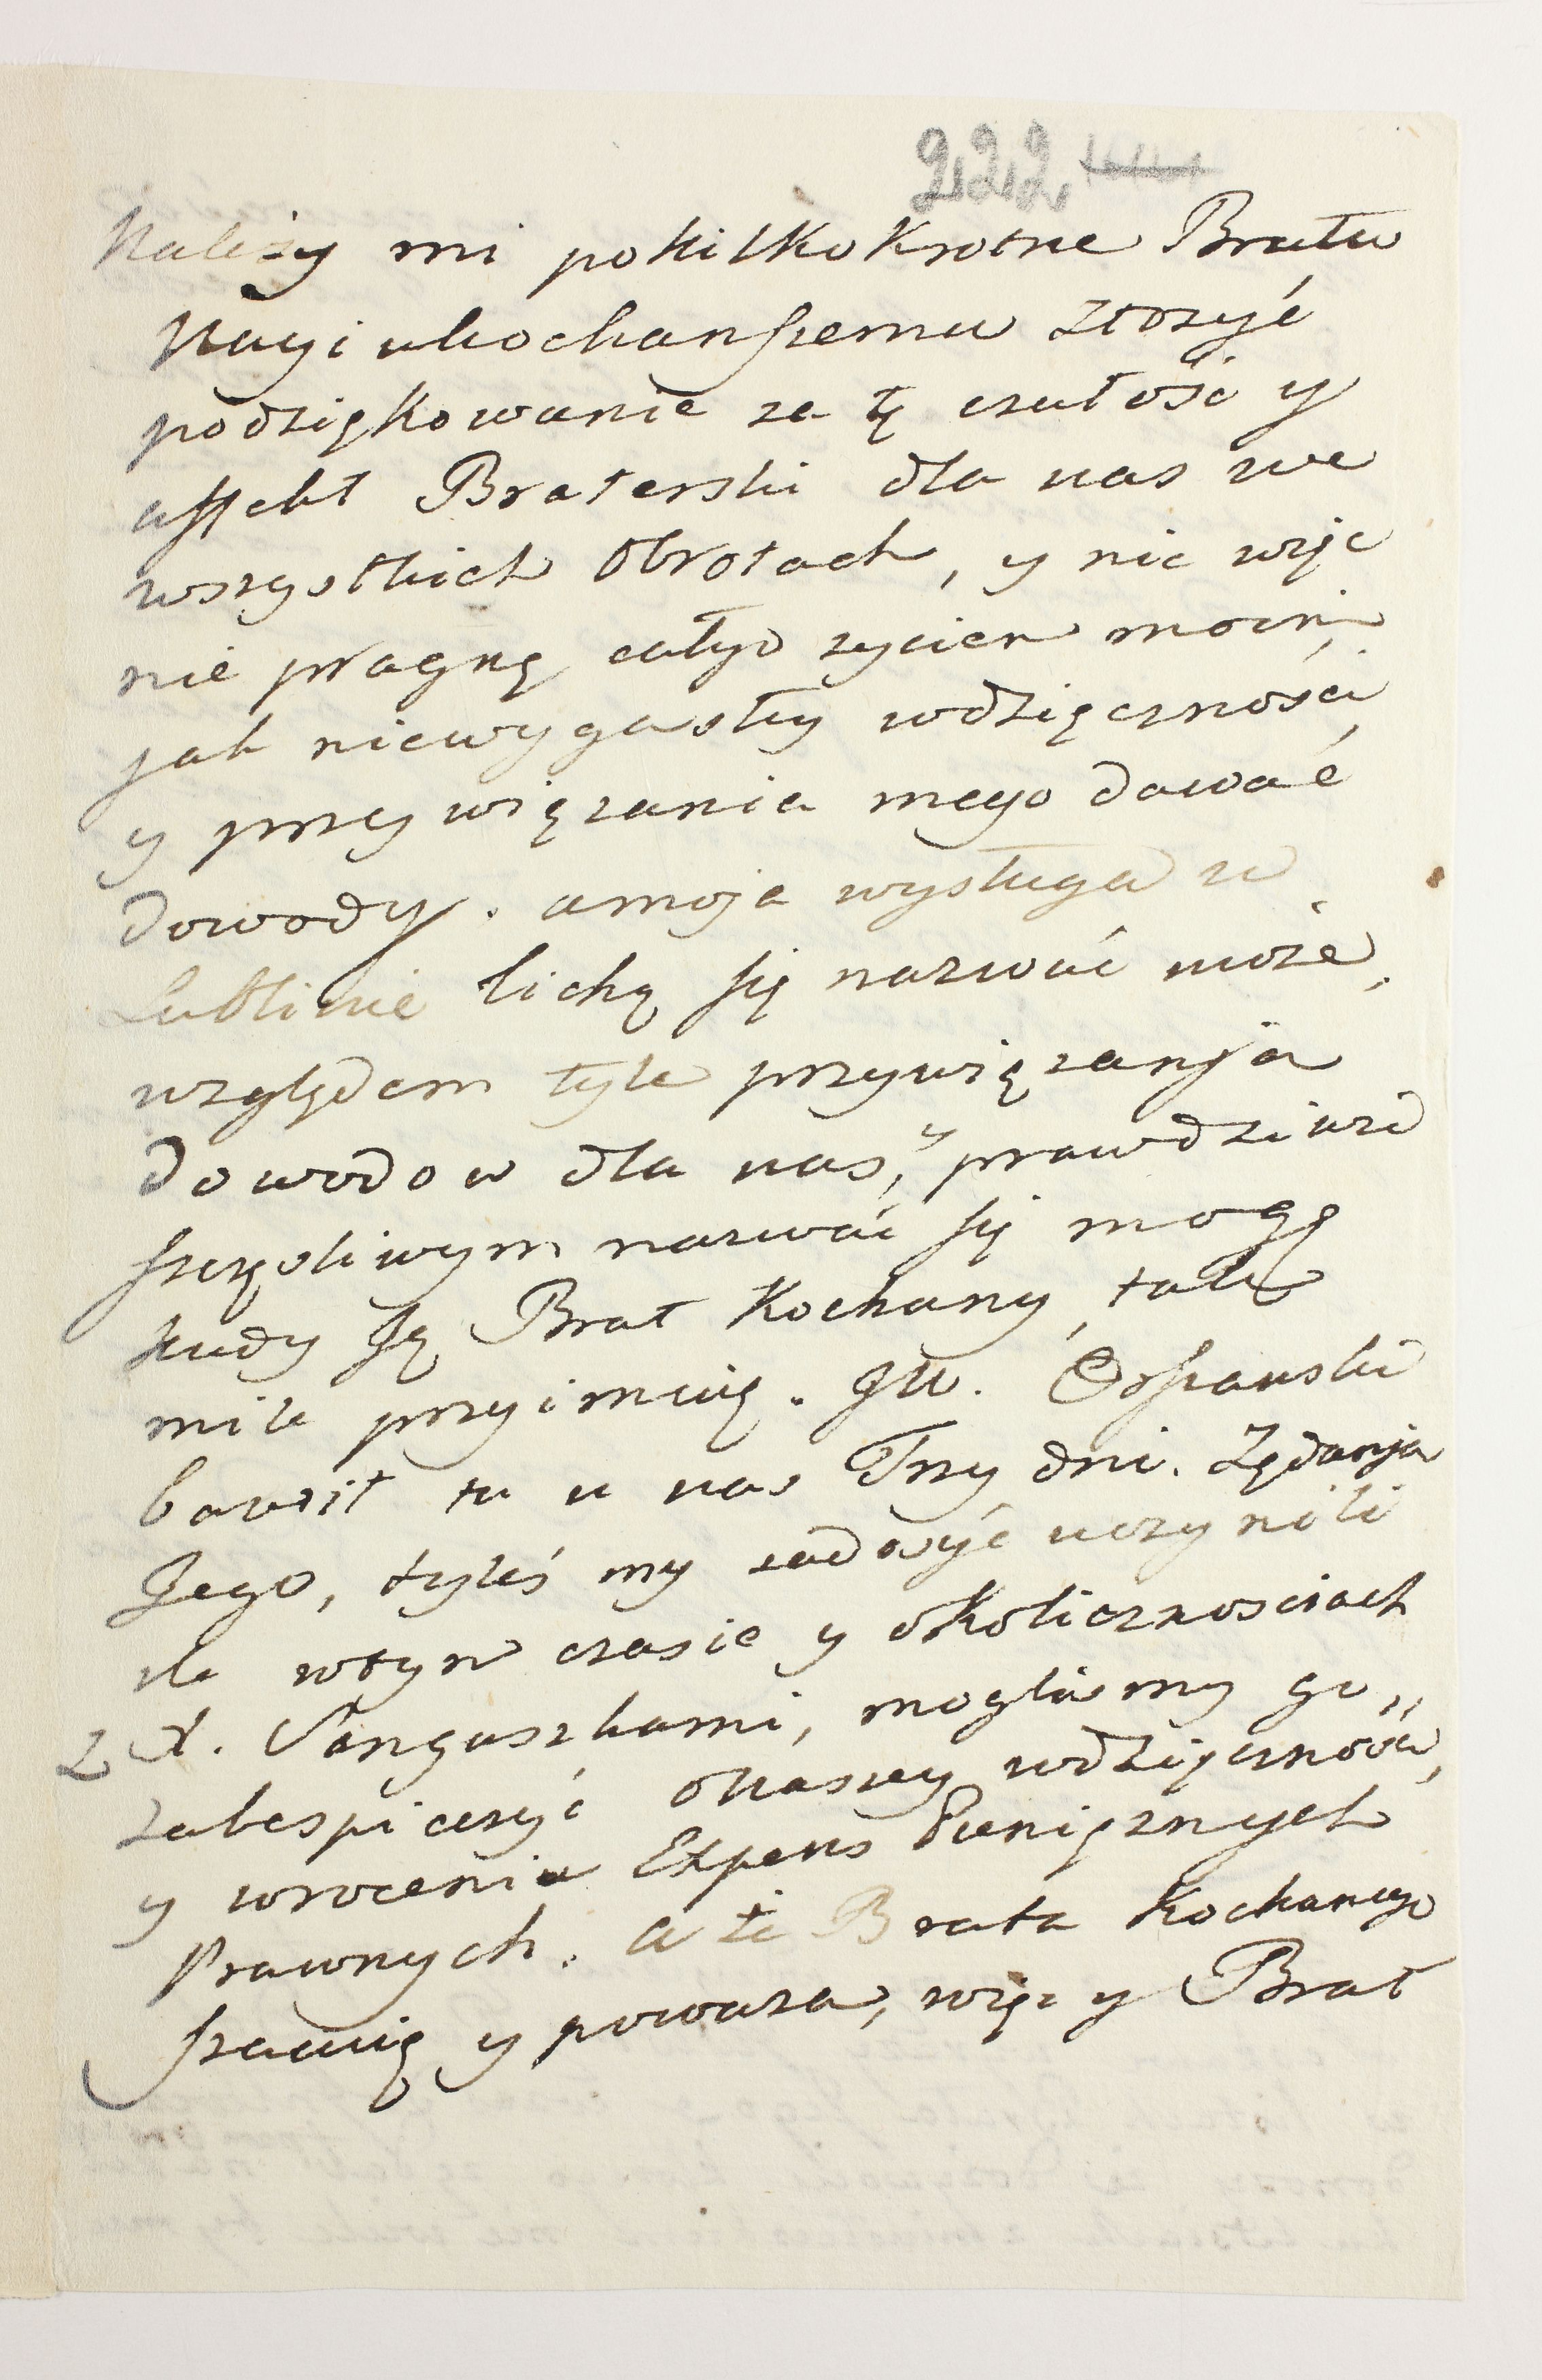 222.
Należy mi pokilkokrotne Bratu
Nayiukochanszemu złożyć
podziękowanie za tę czułość y
affekt Braterski dla nas we
wszystkich obrotach, y nic więc
nie pragnę całyo życiem
jak niewygasły wdzięczności
y przywiązania mego dawać
dowody. amoja wysługa w
Lublinie lichą się nazwać może,
względem tyle przywiązanja
dowodow dla nas, y prawdziwie
szczęśliwym nazwać się mogę
kiedy ją Brat Kochany, tak
mile przyimuię. JW.
bawił tu u nas Trzy dni. Żądanja
Jego, tyleś my zadosyć uczynili
ile wtym czasie y okolicznościach
z X. Sanguszkami, mogliśmy go „
zabespieczyć onaszey wdzięczności,
y wrocenia Expens Pieniężnych
Prawnych. a że Brata Kochanego
szanuię y poważa, więc y Brat